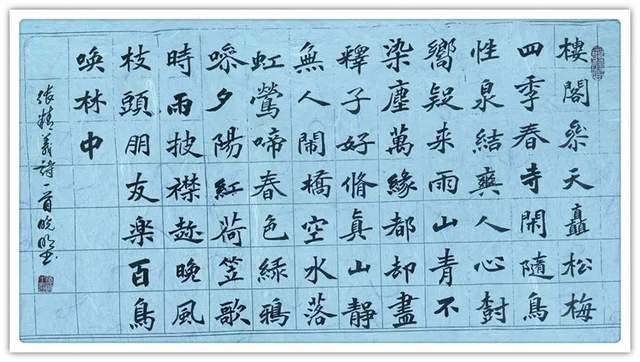 樓閣叅天矗松梅
四季春寺閑隨鳥
性泉結爽人心樹
嚮疑来雨山青不
染塵萬緣都却盡
釋子好脩真山靜
無人鬧橋空水落
虹鶯啼春色緑鴉
噪夕陽紅荷笠歌
時雨披襟趂晚風
枝頭朋友楽百鳥
喚林中
張精義詩一首晓明书